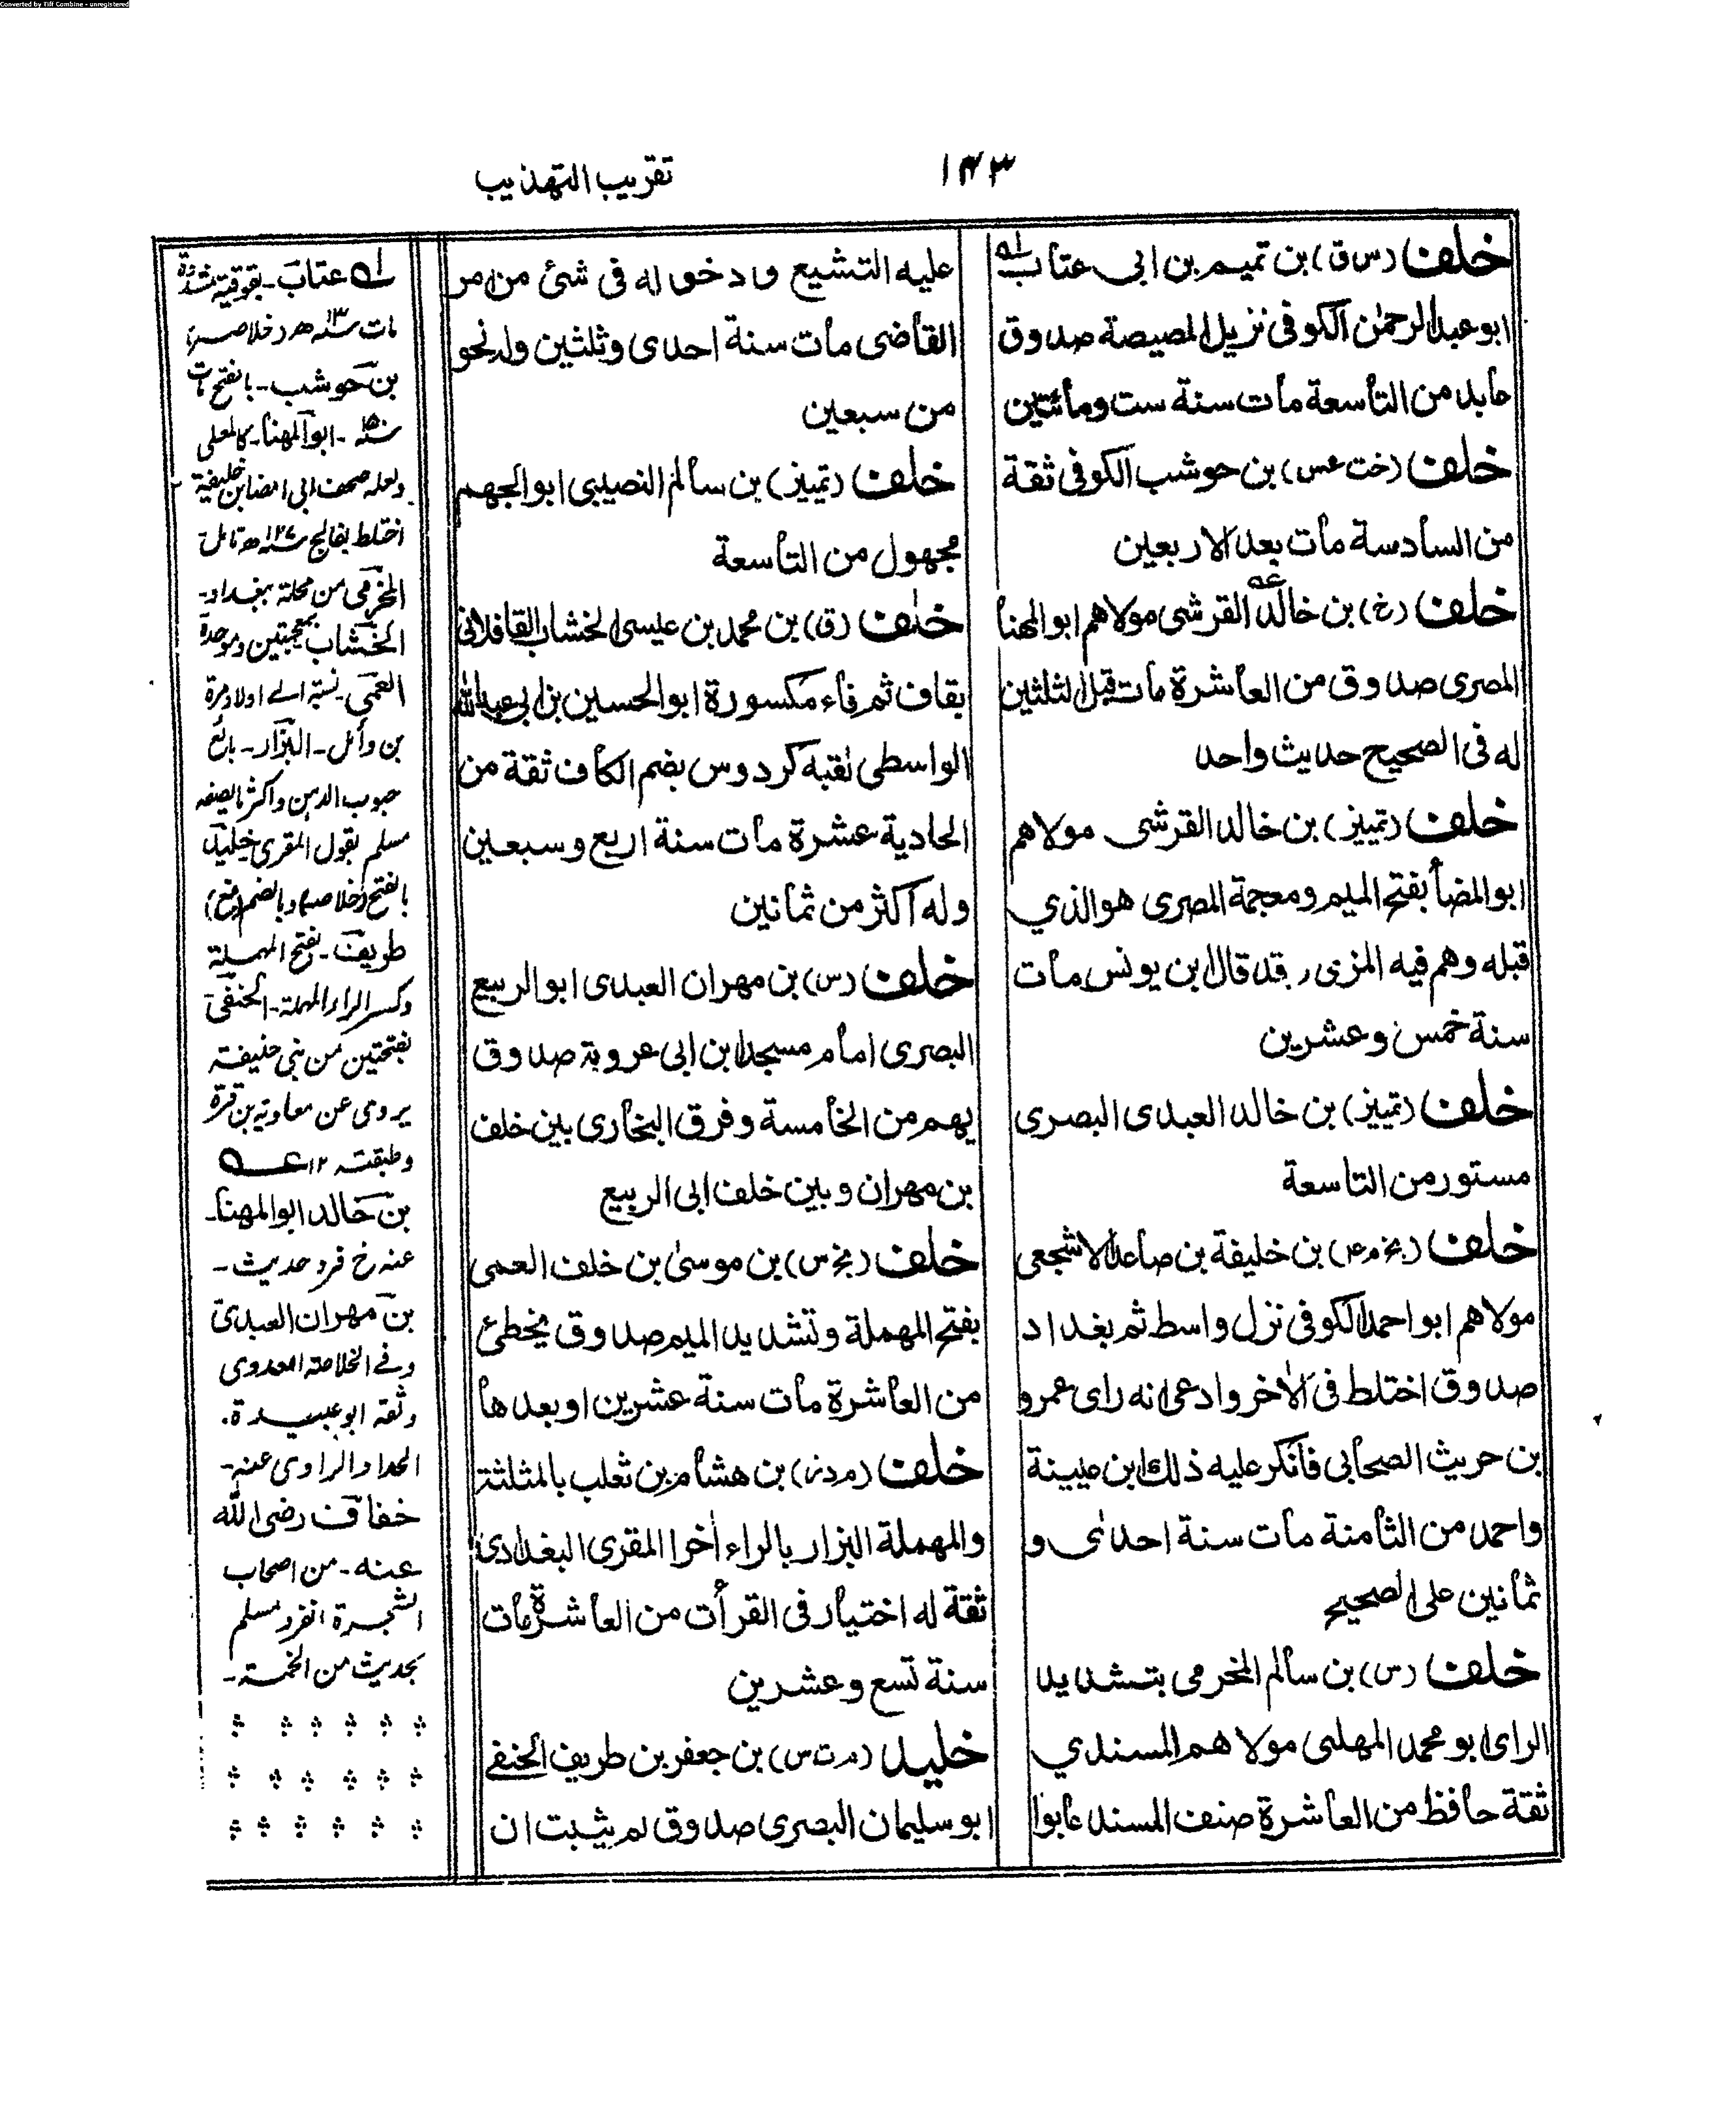 Converted by Tiff Combine - unregistered
١٤٣
تقريب التهذيب
خلف (س ق) بن تميم بن ابى عتاب
ابو عبد الرحمٰن الكوفى نزيل المصيصة صدوق
عابد من التاسعة مات سنة ست ومائتين
خلف (خت عس) بن حوشب الكوفى ثقة
من السادسة مات بعد الاربعين
خلف (خ) بن خالد القرشى مولاهم ابو المهنا
المصرى صدوق من العاشرة مات قبل الثلثين
له فى الصحيح حديث واحد
خلف (تمييز) بن خالد القرشى مولاهم
ابو المضا بفتح الميم ومعجمة المصرى هو الذي
قبله وهم فيه المزى وقد قال ابن يونس مات
سنة خمس وعشرين
خلف (تمييز) بن خالد العبدى البصرى
مستور من التاسعة
خلف (بخ م ٤) بن خليفة بن صاعد الاشجعى
مولاهم ابو احمد الكوفى نزل واسط ثم بغداد
صدوق اختلط فى الاٰخر وادعى انه راى عمرو
بن حريث الصحابى فانكر عليه ذلك ابن عيينة
واحمد من الثامنة مات سنة احدى و
ثمانين على الصحيح
خلف (س) بن سالم المخرمى بتشديد
الراى ابو محمد المهلبى مولاهم السندي
ثقة حافظ من العاشرة صنف المسند عابوا
عليه التشيع ودخوله فى شئ من امر
القاضى مات سنة احدى وثلثين وله نحو
من سبعين
خلف (تمييز) بن سالم النصيبى ابو الجهم
مجهول من التاسعة
خلف (ق) بن محمد بن عيسى الخشاب القافلانى
بقاف ثم فاء مكسورة ابو الحسين بن ابى عبد الله
الواسطى لقبه كردوس بضم الكاف ثقة من
الحادية عشرة مات سنة اربع وسبعين
وله اكثر من ثمانين
خلف (س) بن مهران العبدى ابو الربيع
البصرى امام مسجد ابن ابى عروبة صدوق
يهم من الخامسة وفرق البخارى بين خلف
بن مهران وبين خلف ابى الربيع
خلف (بخ س) بن موسىٰ بن خلف العمى
بفتح المهملة وتشديد الميم صدوق يخطئ
من العاشرة مات سنة عشرين او بعدها
خلف (م د ز) بن هشام بن ثعلب بالمثلثة
والمهملة البزار بالراء اٰخرا المقرى البغدادى
ثقة له اختيار فى القرأت من العاشرة مات
سنة تسع وعشرين
خليد (م ت س) بن جعفر بن طريف الحنفى
ابو سليمان البصرى صدوق لم يثبت ان
له عتاب - بفوقية مشددة
مات سنة ١٣ھ (خلاصة)
بن حوشب - بالفتح مات
ابو المهنا - كالمعلى
ولعله صحف ابى المضا بن خليفة
اختلط بفالج سنة ١٢٧ھ
المخرمى من محلة ببغداد -
الخشاب بمعجمتين وموحدة
العمى - نسبة الے اولاد مرة
بن وائل - البزار - بائع
حبوب الدهن
مسلم بقول المقرى خليد
بالفتح (خلاصه) وبالضم
طريف - بفتح المهملة
وكسر الراء المهملة - الحنفى
بفتحتين من بنى حنيفه
يروى عن معاويه بن قرة
وطبقته ١٢ عـه
بن خالد ابو المهنا -
عنه خ فرد حديث -
بن مهران العبدى
وفے الخلاصة العدوى
وثقه ابو عبيدة .
الحداد الراوى عنه -
خفاف رضى الله
عنه - من اصحاب
الشجرة انفرد مسلم
بحديث من الخمسة -